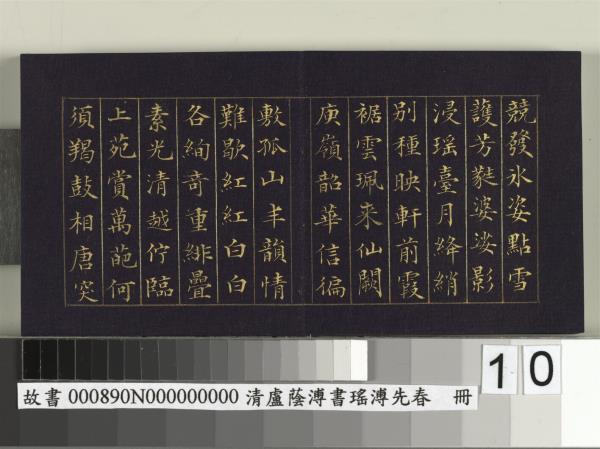 競發氷姿點雪
護芳蕤婆娑影
浸瑶臺月絳綃
别種映軒前霞
裾雲珮來仙闕
庾嶺韶華信徧
敷孤山丰韻情
難歇紅紅白白
各絢竒重緋疊
素光清越佇臨
上苑賞萬葩何
須羯鼓相唐突
10
故書 000890N000000000 清盧蔭溥書瑤溥先春 冊